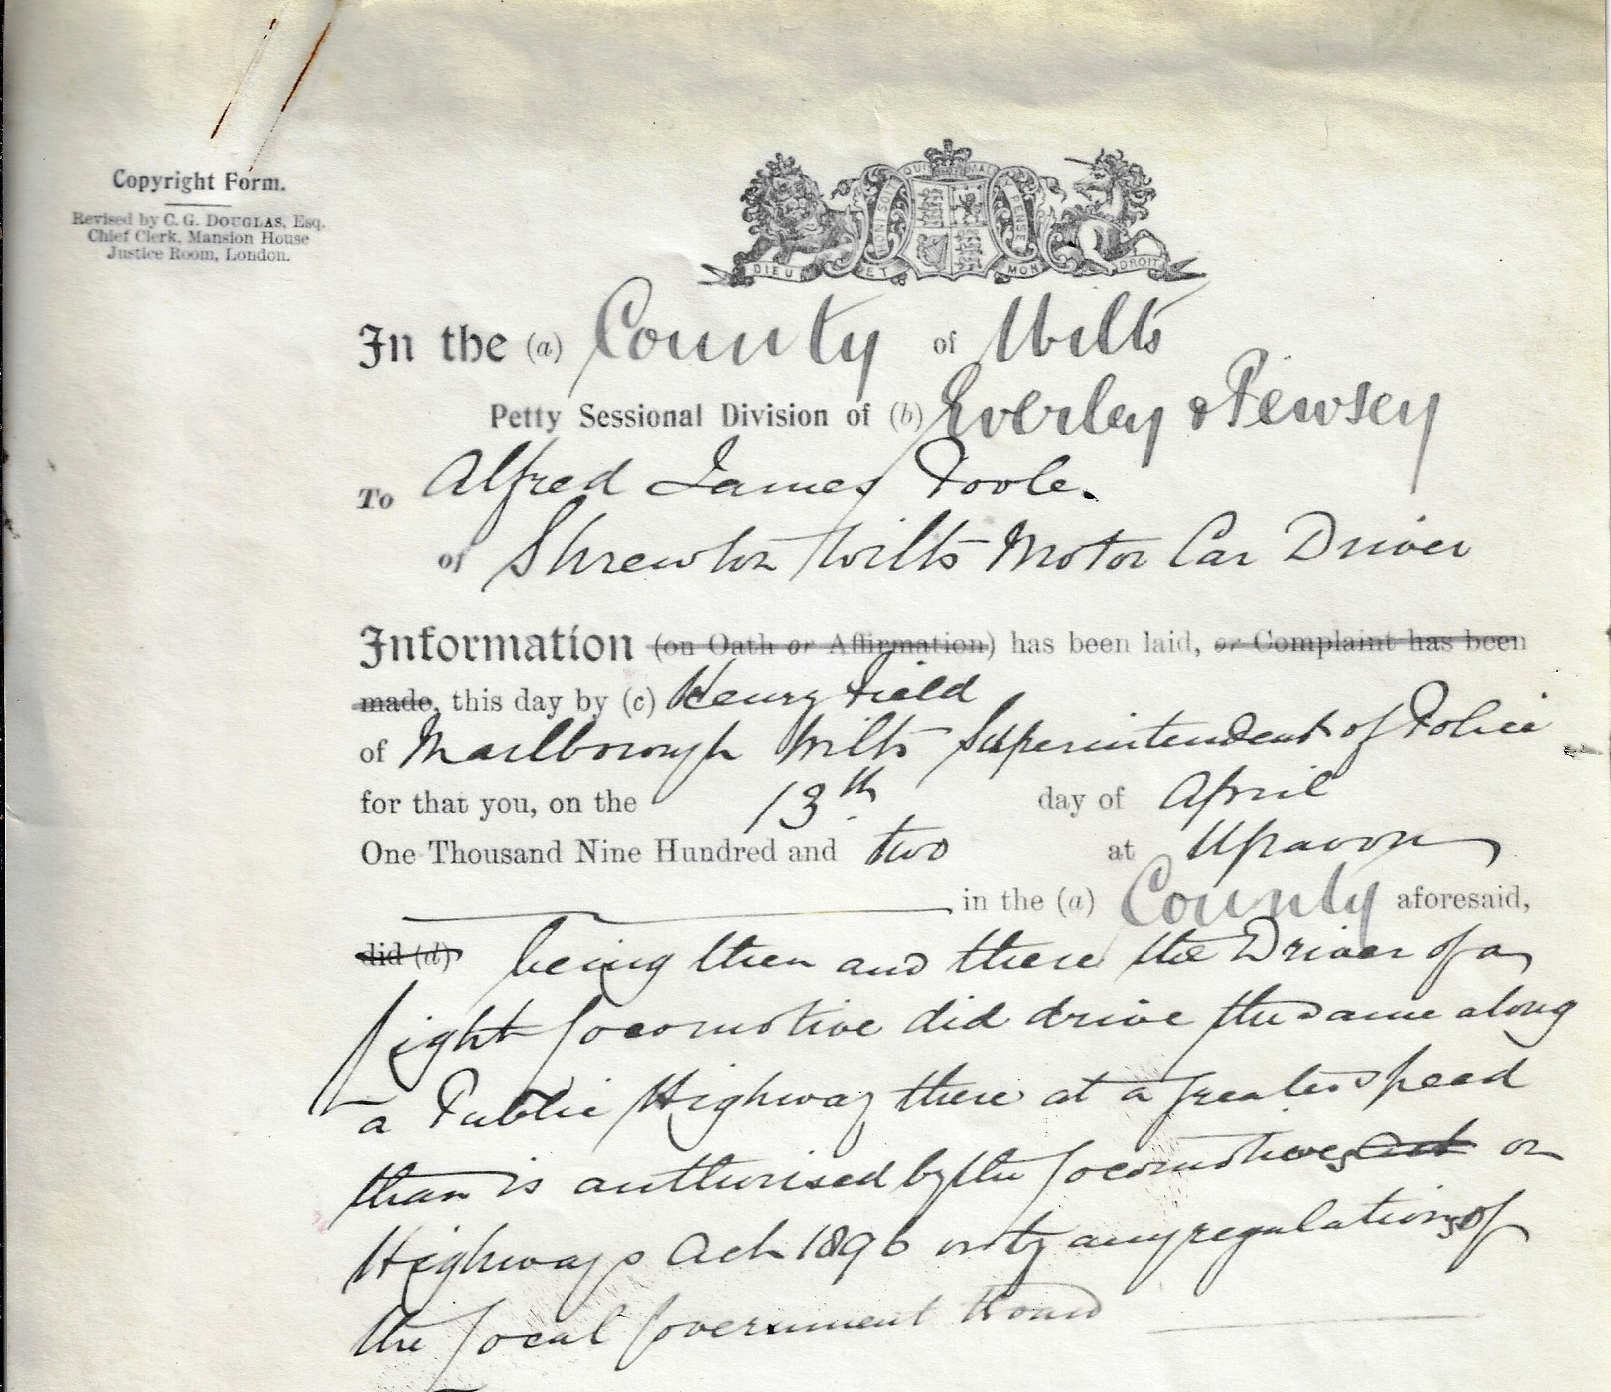 Copyright Form.
Revised by C. G. DOUGLAS, Esq.
Chief Clerk, Mansion House
Justice Room, London.
HONI SOIT QUI MAL Y PENSE
DIEU ET MON DROIT
In the (a) County of Wilts
Petty Sessional Division of (b) Everley & Pewsey
To Alfred James Poole.
of Shrewton Wilts Motor Car Driver
Information (on Oath or Affirmation) has been laid, or Complaint has been
made, this day by (c) Henry Field
of Marlborough Wilts Superintendent of Police
for that you, on the 13th day of April
One Thousand Nine Hundred and two at Upavon
in the (a) County aforesaid,
did (d) being then and there the Driver of a
Light Locomotive did drive the same along
a Public Highway there at a greater speed
than is authorised by the Locomotives Act on
Highways Act 1896 or by any regulations of
the Local Government Board